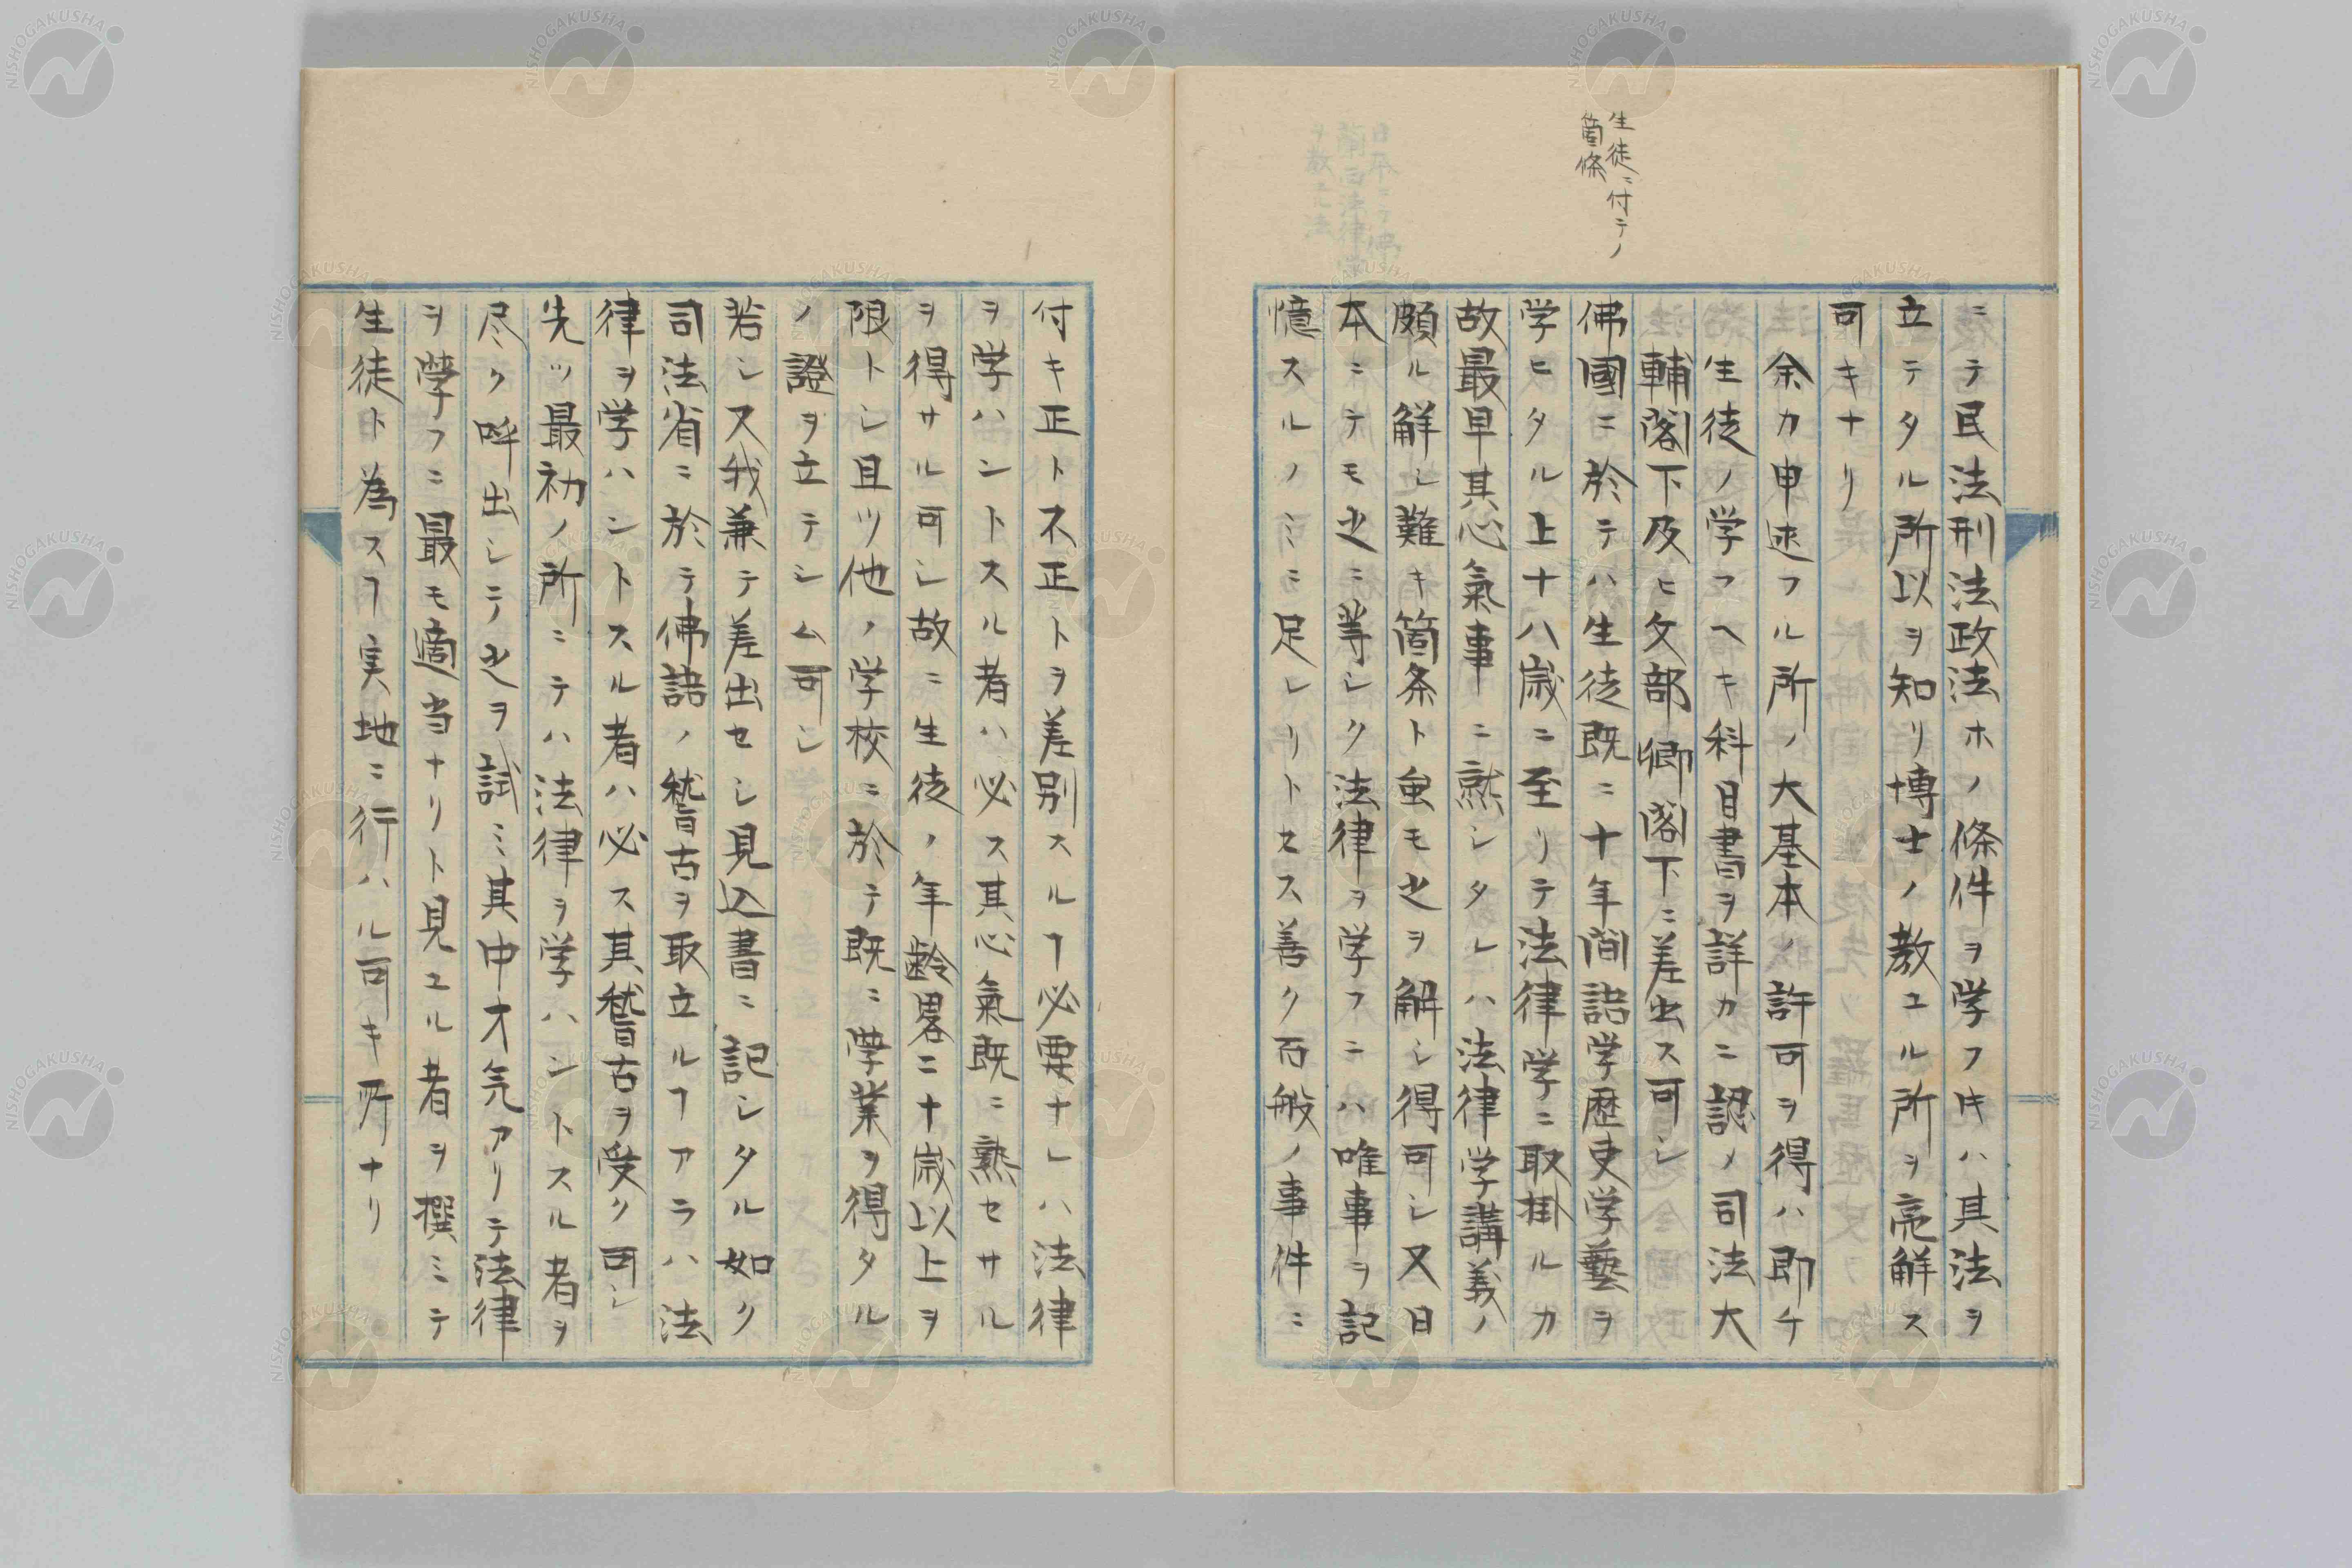 生徒ニ付テノ
箇條
ニテ民法刑法政法ホノ條件ヲ学フ𪜈ハ其法ヲ
立テタル所以ヲ知リ博士ノ教ユル所ヲ亮解ス
可キナリ
余カ申述フル所ノ大基本ノ許可ヲ得ハ即チ
生徒ノ学フヘキ科目書ヲ詳カニ認メ司法大
輔閣下及ヒ文部卿閣下ニ差出ス可シ
佛國ニ於テハ生徒既ニ十年間語学歴史学藝ヲ
学ヒタル上十八歳ニ至リテ法律学ニ取掛ルカ
故最早其心氣事ニ熟シタレハ法律学講義ノ
頗ル解シ難キ箇条ト虽モ之ヲ解シ得可シ又日
本ニテモ之ニ等シク法律ヲ学フニハ唯事ヲ記
憶スルノミニ足レリトセス善ク百般ノ事件ニ
付キ正ト不正トヲ差別スルヿ必要ナレハ法律
ヲ学ハントスル者ハ必ス其心氣既ニ熟セサル
ヲ得サル可シ故ニ生徒ノ年齢畧二十歳以上ヲ
限トシ且ツ他ノ学校ニ於テ既ニ學業ヲ得タル
ノ證ヲ立テシム可シ
若シ又我兼テ差出セシ見込書ニ記シタル如ク
司法省ニ於テ佛語ノ稽古ヲ取立ルヿアラハ法
律ヲ学ハントスル者ハ必ス其稽古ヲ受ク可シ
先ツ最初ノ所ニテハ法律ヲ学ハントスル者ヲ
尽ク呼出シテ之ヲ試ミ其中才気アリテ法律
ヲ學フニ最モ適当ナリト見ユル者ヲ撰ミテ
生徒ト為スヿ実地ニ行ハル可キ所ナリ